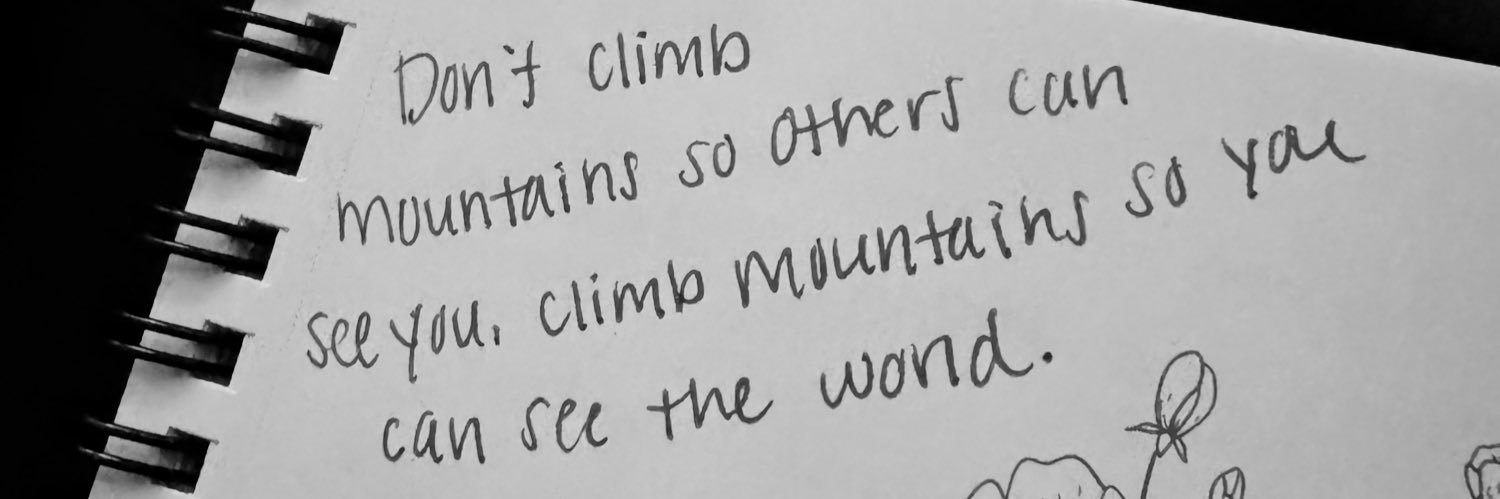 Don't climb
mountains so others can
see you, climb mountains so you
can see the world.